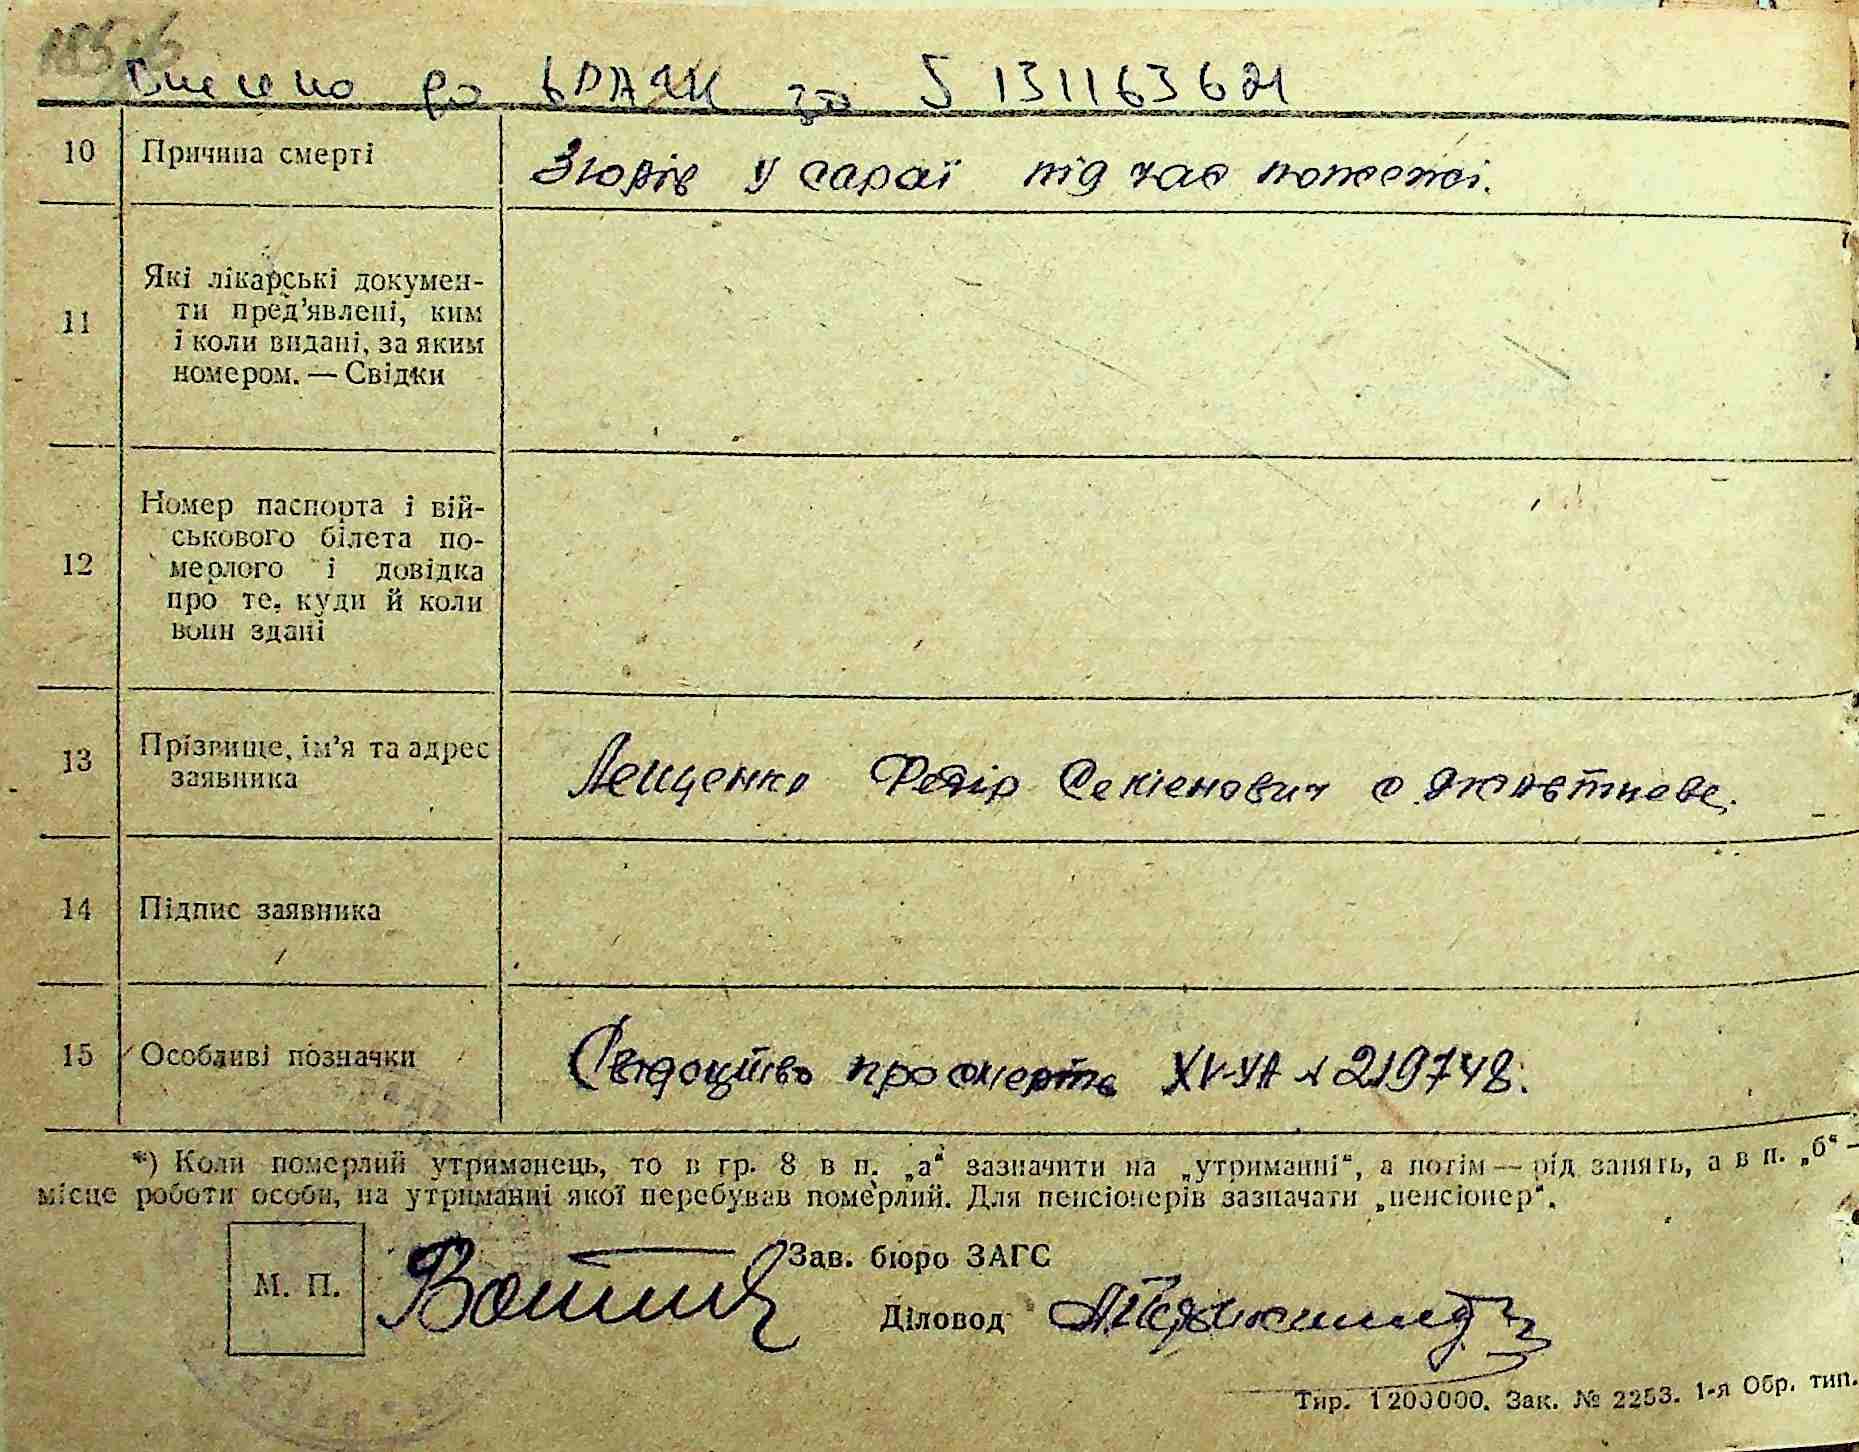 Внесено до ЄРАЦС за 5131163621
10 Причина смерті Згорів у сараї під час пожежі.
11 Які лікарські докумен-
ти пред’явлені, ким
і коли видані, за яким
номером. — Свідки
12 Номер паспорта і вій-
ськового білета по-
мерлого і довідка
про те, куди й коли
вони здані
13 Прізвище, ім’я та адрес
заявника
Лещенко Федір
14 Підпис заявника
15 Особливі позначки
Свідоцтво про смерть XV-УА № 219748.
*) Коли померлий утриманець, то в гр. 8 в п. „а“ зазначити на „утриманні“, а потім — рід занять, а в п. „б“ —
місце роботи особи, на утриманні якої перебував померлий. Для пенсіонерів зазначати „пенсіонер“.
М. П.
Зав. бюро ЗАГС
Діловод
Тир. 1200000. Зак. № 2253. 1-я Обр. тип.